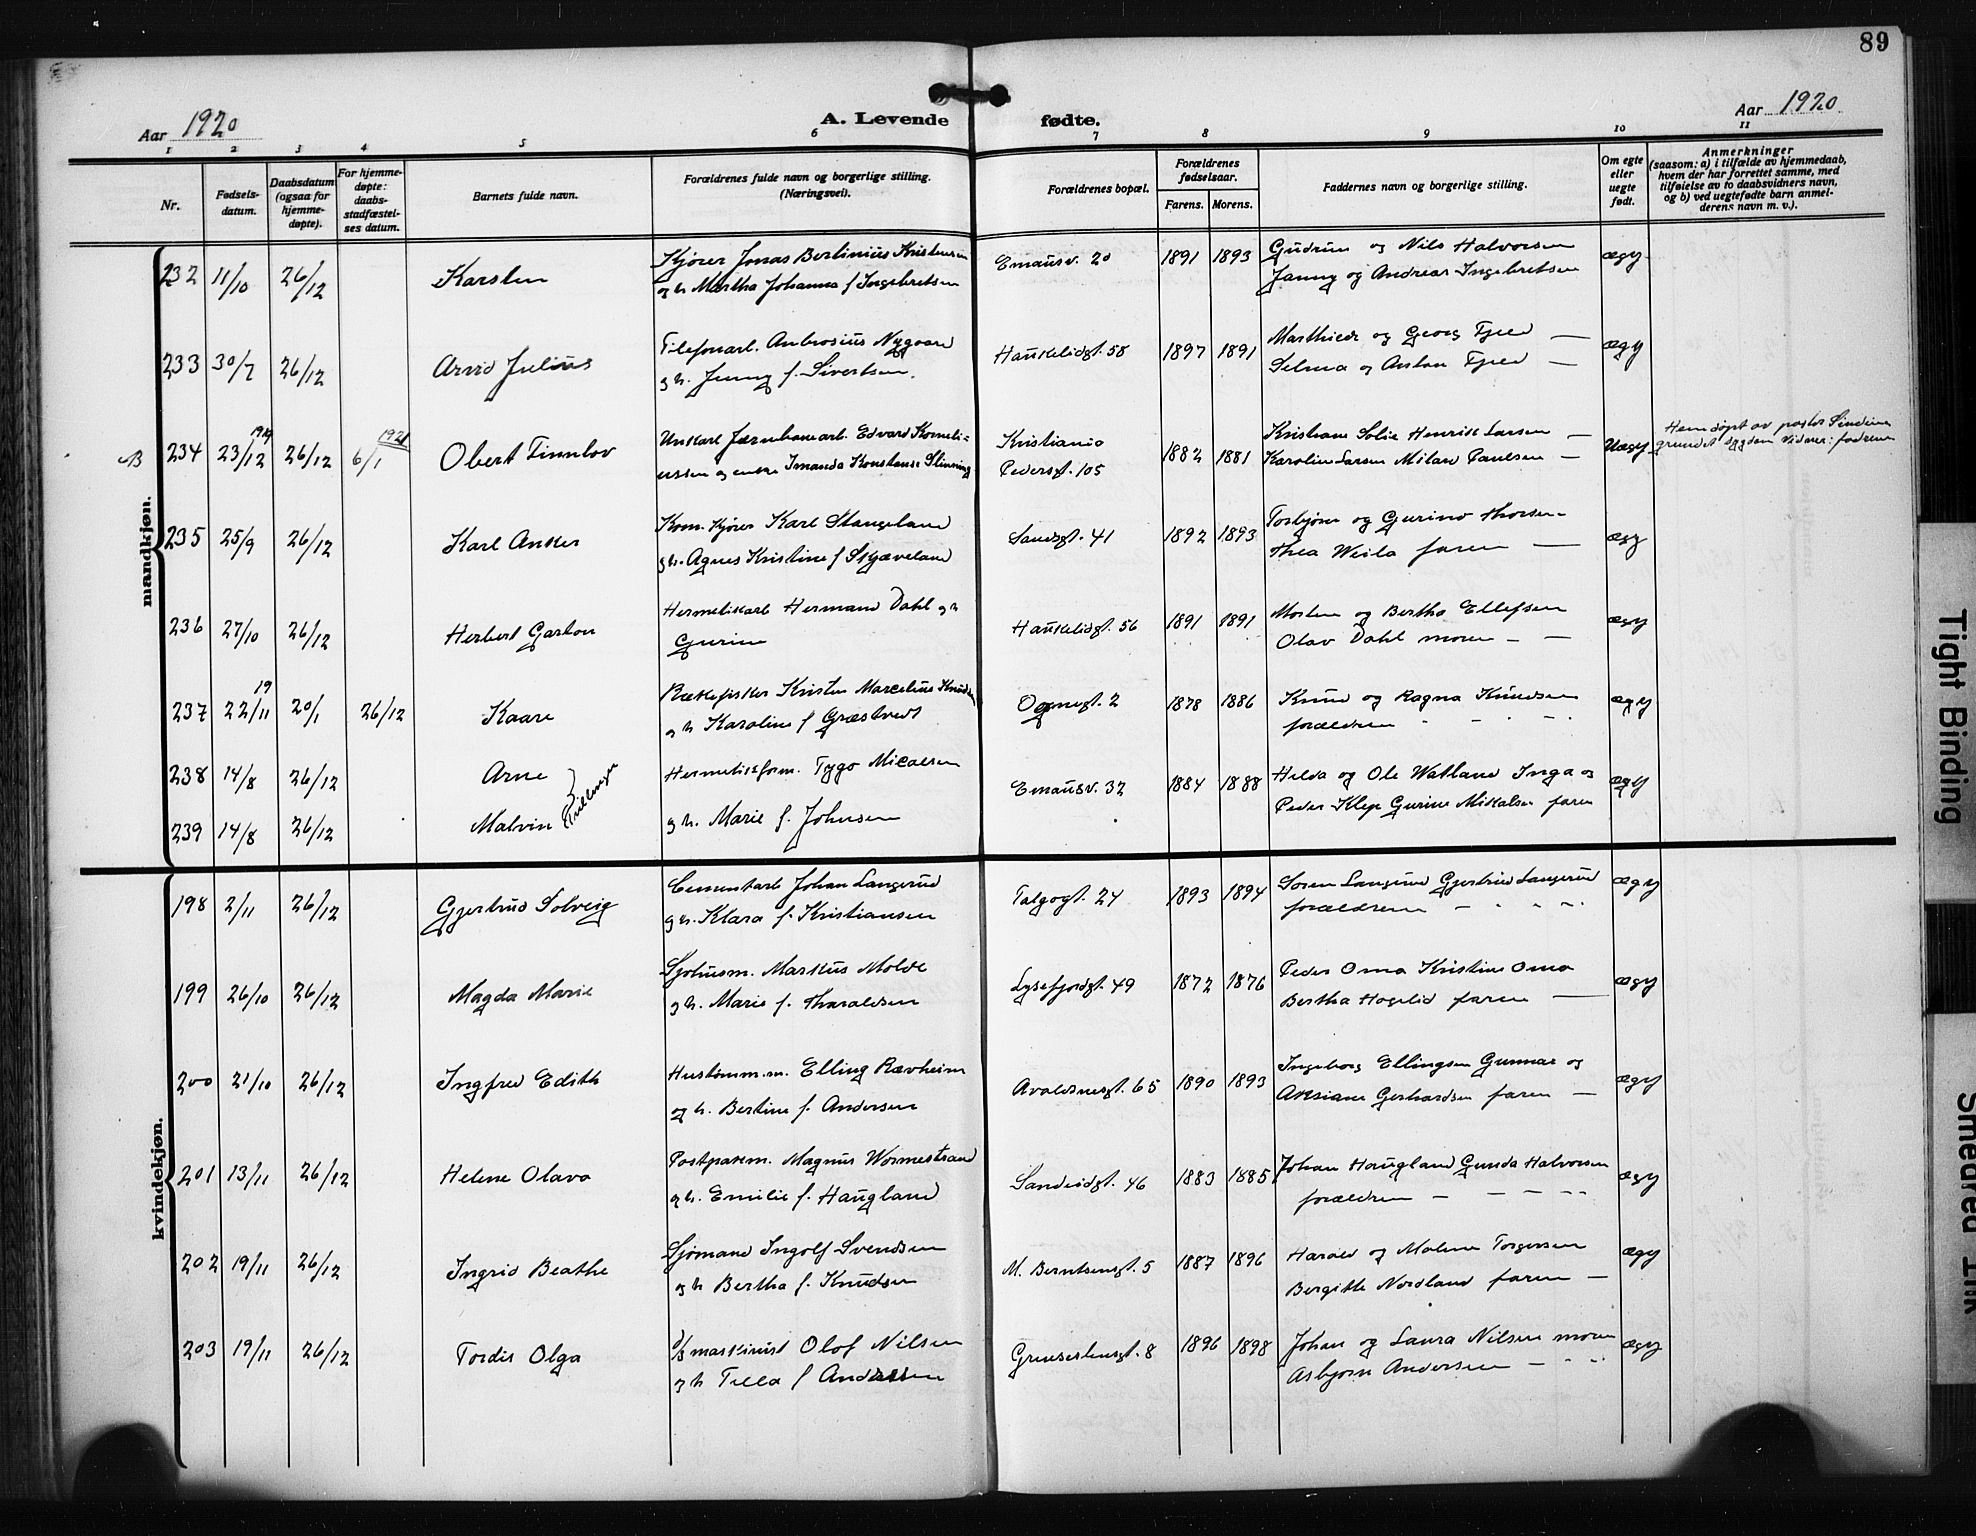 89
Aar 1920
A. Levende fødte.
Aar 1920
1 2 3 4 5 6 7 8 9 10 11
Nr.
Fødsels-
datum.
Daabsdatum
(ogsaa for
hjemme-
døpte).
For hjemme-
døpte:
daabs-
stadfæstel-
ses datum.
Barnets fulde navn.
Forældrenes fulde navn og borgerlige stilling.
(Næringsvei).
Forældrenes bopæl.
Forældrenes
fødselsaar.
Farens. Morens.
Faddernes navn og borgerlige stilling.
Om egte
eller
uegte
født.
Anmerkninger
(saasom: a) i tilfælde av hjemmedaab,
hvem der har forrettet samme, med
tilføielse av to daabsvidners navn,
og b) ved uegtefødte barn anmel-
derens navn m. v.).
mandkjøn.
232 11/10 26/12 Karsten
Kjører Jonas Bertinius Kristensen
og h. Martha Johanna f Ingebretsen
Emausv. 20 1891 1893
Gudrun og Nils Halvorsen
Janny og Andreas Ingebretsen
ægy
233 30/7 26/12 Arvid Julius
Telefonarb. Ambrosius Nygaard
g h. Jenny f. Sivertsen.
Haukelidgt. 58 1897 1891
Marthiede og Georg Fjeld —
Selma og Anton Fjeld —
ægy
B 234 23/12 1919 26/12 6/1 1921 Obert Finnlov
Unkarl Jærnbanearb. Edvard Korneli-
ussen og enke Imanda Konstanse Slinning
Kristiania
Pedersgt. 105 1882 1881
Kristiane Solie Henrik Larsen —
Karoline Larsen Milard Paulsen —
Uægy
Hemdöpt av pastor
grundet sygdom vidner: fadrene
235 25/9 26/12 Karl Anker
Kom. kjører Karl Stangeland
g h. Agnes Kristine f Skjæveland
Sandsgt. 41 1892 1893
Torbjørn og Gurine Thorsen
Thea Weila faren —
ægy
236 27/10 26/12 Herbert Gaston
Hermetikarb Hermand Dahl g h
Gurine
Haukelidgt. 56 1891 1891
Morten og Bertha Ellefsen
Olav Dahl moren — —
ægy
237 22/11 19 20/1 26/12 Kaare
Rækefisker Kristen Marcelius Knudsen
g h Karoline f Græstvedt
Ognegt. 2 1878 1886
Knud og Ragna Knudsen
forældrene
ægy
238 14/8 26/12 Arne
239 14/8 26/12 Malvin
Tvillinger
Hermetikform. Tygo Micalsen
g h. Marie f. Johnsen
Emausv. 32 1884 1888
Helda og Ole Watland Inga og
Peder Klep Gurine Mikalsen faren
ægy
kvindekjøn.
198 2/11 26/12 Gjertrud Solveig
Cementarb Johan Langerud
g h. Klara f. Kristiansen
Talgogt. 24 1893 1894
Soren Langerud Gjertrud Langerud
forældrene
ægy
199 26/10 26/12 Magda Marie
Sjøhusm. Markus Molde
g h. Marie f. Tharaldsen
Lysefjordgt. 49 1872 1876
Peder Oma Kristine Oma
Bertha Hogelid faren —
ægy
200 21/10 26/12 Ingfred Edith
Hustømm.m. Elling Rævheim
og h. Bertine f. Andersen
Avaldsnesgt. 65 1890 1893
Ingeborg Ellingsen Gunnar og
Aksiane Gerhardsen faren —
ægy
201 13/11 26/12 Helene Olava
Postpakm. Magnus Wormestrand
g h. Emilie f. Haugland
Sandeidgt. 46 1883 1885
Johan Haugland Gunda Halvorsen
forældrene
ægy
202 19/11 26/12 Ingrid Beathe
Sjømand Ingolf Svendsen
og h Bertha f. Knudsen
M. Berntsensgt. 5 1887 1896
Harald og Malene Torgersen
Bergitte Nordland faren —
ægy
203 19/11 26/12 Tordis Olga
D/S maskinist Olof Nilsen
g h Tilla f Andersen
1896 1898
Johan og Laura Nilsen moren
Asbjørn Andersen
ægy
Tight Binding
Smeared Ink